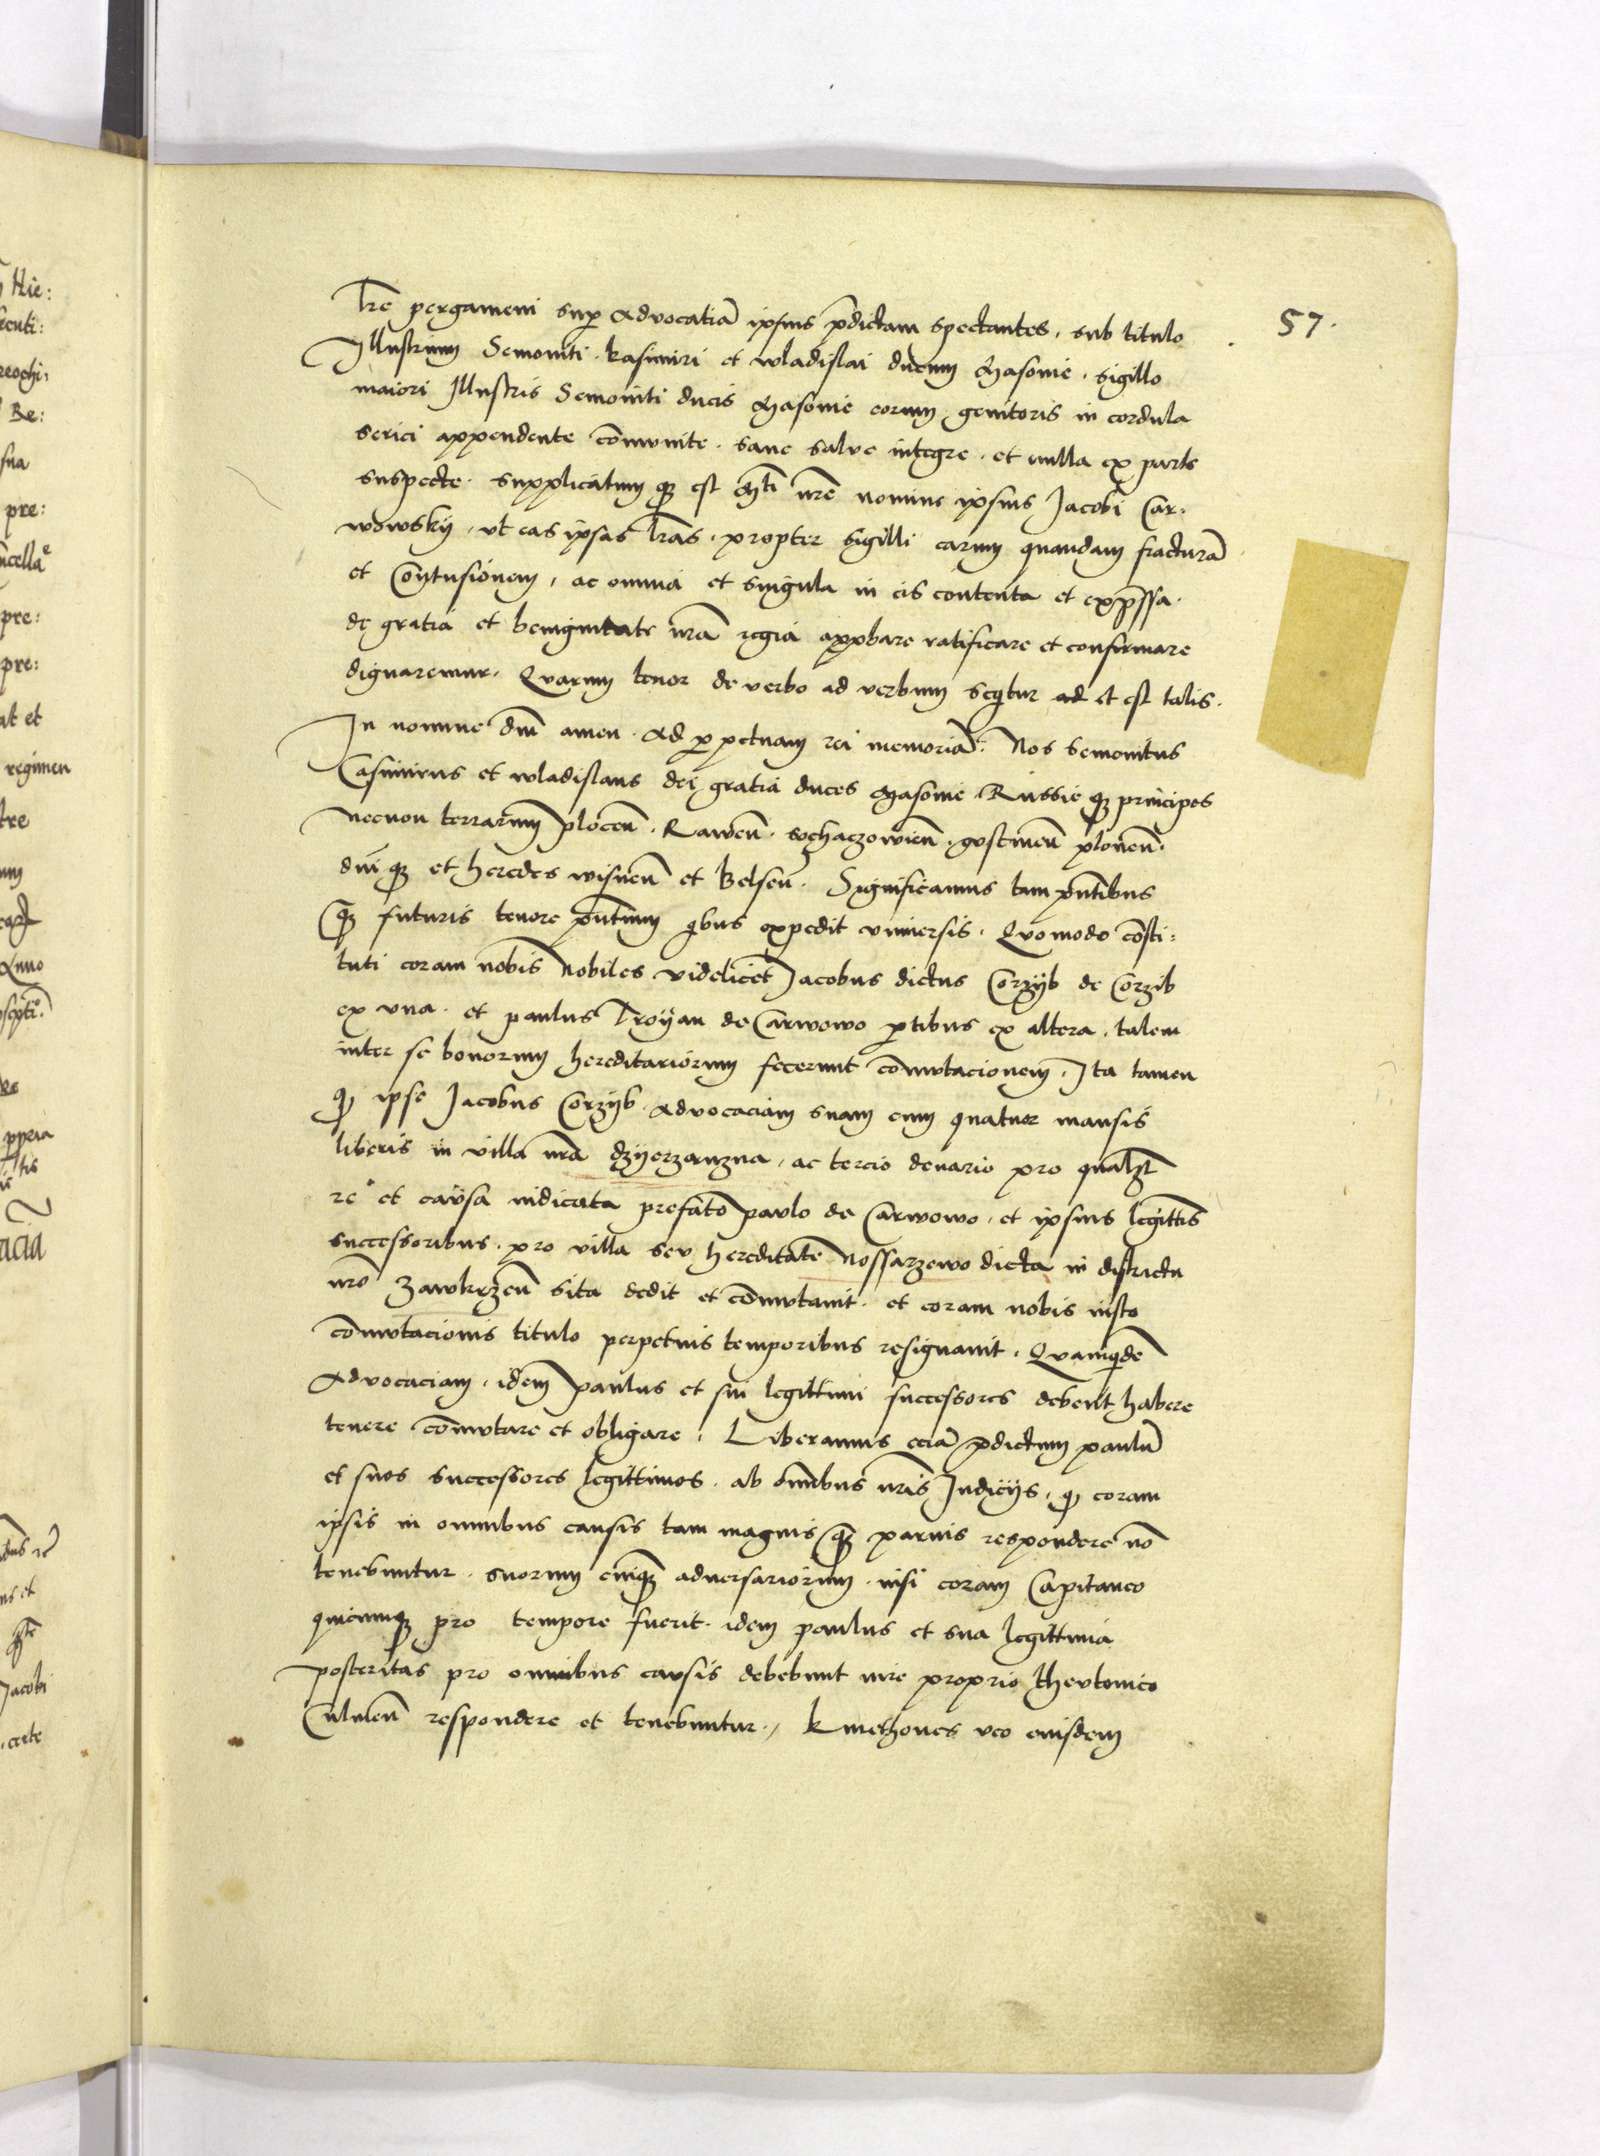 57.
Lre pergameni sup advocatia ipsius pdictam spectantes, sub titulo
Illustrium Semoviti, kasimiri et wladislai ducum Masovie, sigillo
maiori Illustris Semoviti ducis Masovie eorum genitoris in cordula
serici appendente comunite, sane salve integre, et nulla ex parte
suspecte. supplicatum q est Mti nre nomine ipsius Jacobi Car-
wowskij, ut eas ipsas lras, propter sigilli earum quandam fractura
et Contusionem, ac omnia et singula in eis contenta et expssa.
de gratia et benignitate nra regia appbare ratificare et confirmare
dignaremur. Quarum tenor de verbo ad verbum seqtur et est talis.
In nomine dni amen. Ad ppetuam rei memoria. Nos Semovitus
Casimirus et wladislaus dei gratia duces Masovie Russie q principes
necnon terrarum plocen. Rawen. sochaczowien, gostinen plonen.
dni q et heredes wisnen et Belsen. Significamus tam pntibus
q futuris tenore pntium qbus expedit universis. Quomodo consti=
tuti coram nobis Nobiles videlicet Jacobus dictus Corzijb de Corzib
ex una. et paulus Troijan de Carwowo ptibus ex altera, talem
inter se bonorum hereditariorum fecerunt comutacionem, Ita tamen
q ipse Jacobus Corzijb Advocaciam suam cum quatuor mansis
liberis in villa nra dzyerzanzna, ac tercio denario pro qualz
re et causa iudicata prefato paulo de Carwowo, et ipsius legittis
successoribus, pro villa seu hereditate Nossarzewo dicta in districtu
nro Zawkrzen sita dedit et comutavit. et coram nobis iusto
comutacionis titulo perpetuis temporibus resignavit, Quamqde
Advocaciam, idem paulus et sui legittimi successores debent habere
tenere comutare et obligare, Liberamus ecia pdictum paulu
et suos successores legittimos, ab omibus nris Judicijs, q coram
ipsis in omnibus causis tam magnis q parvis respondere no
tenebuntur. suorum cuiq adversariorum, nisi coram Capitaneo
quicumq pro tempore fuerit. idem paulus et sua legittima
posteritas pro omnibus causis debebunt iure proprio theutonico
Culmen respondere et tenebuntur, kmethones vero eiusdem